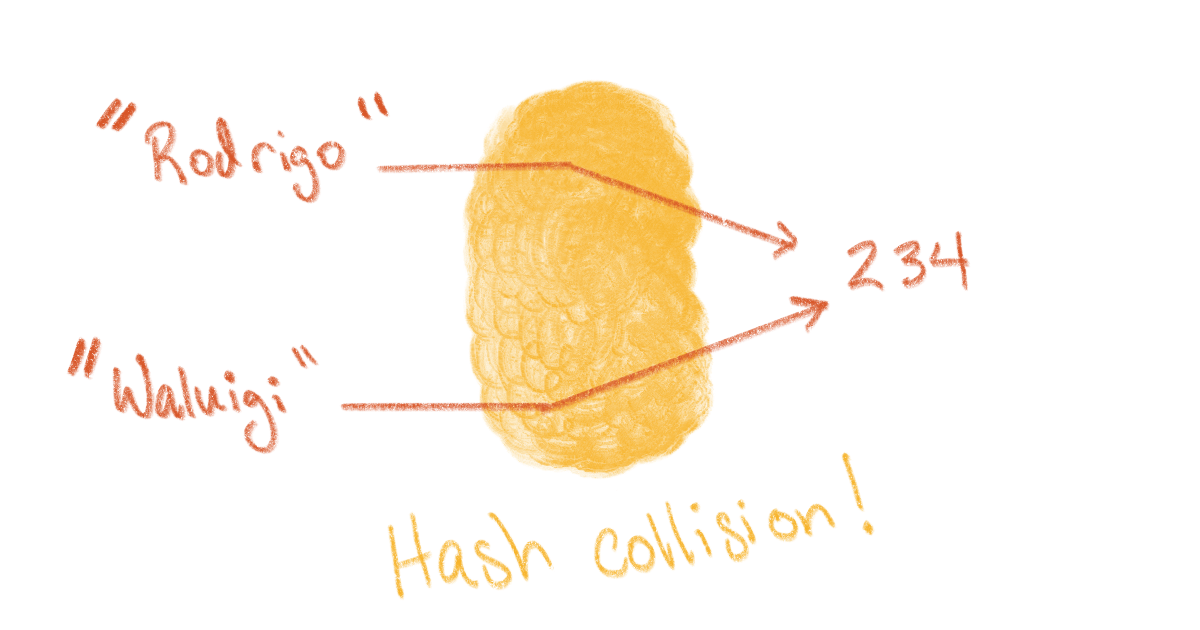 "Rodrigo"
234
"Waluigi"
Hash collision!